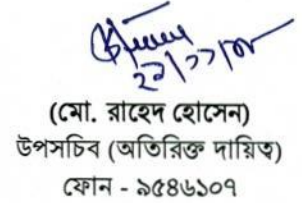 ২৯/১১/০৮
(মো. রাহেদ হোসেন)
উপসচিব (অতিরিক্ত দায়িত্ব)
ফোন - ৯৫৪৬১০৭